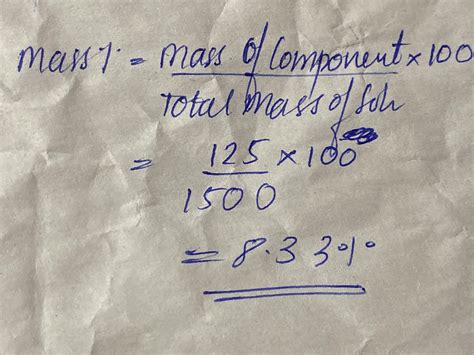 mass % = mass of Component × 100
Total mass of Soln
= 125 × 100
1500
= 8.33%